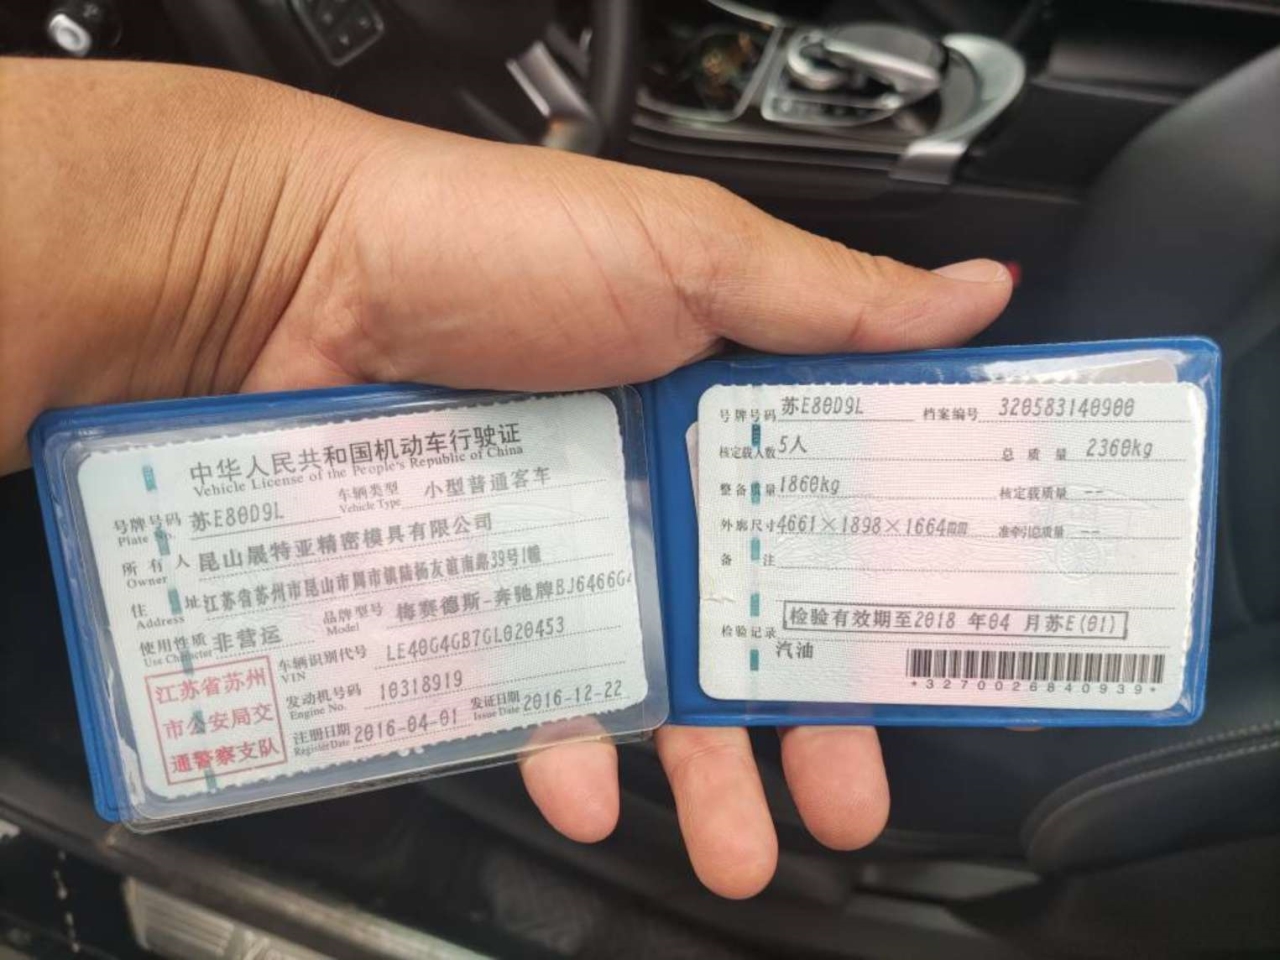 中华人民共和国机动车行驶证
Vehicle License of the People's Republic of China
号牌号码 苏E80D9L 车辆类型 小型普通客车
Plate No. Vehicle Type
所有人 昆山晟特亚精密模具有限公司
Owner
住址 江苏省苏州市昆山市周市镇陆杨友谊南路39号1幢
Address
使用性质 非营运 品牌型号 梅赛德斯-奔驰牌BJ6466G
Use Character Model
江苏省苏州
市公安局交
通警察支队
车辆识别代号 LE40G4GB7GL020453
VIN
发动机号码 10318919
Engine No.
注册日期 2016-04-01 发证日期 2016-12-22
Register Date Issue Date
号牌号码 苏E80D9L 档案编号 320583140900
核定载人数 5人 总质量 2360kg
整备质量 1860kg 核定载质量 --
外廓尺寸 4661×1898×1664mm 准牵引总质量 --
备注
检验有效期至2018 年04 月苏E(01)
检验记录
汽油
*3270026840939*